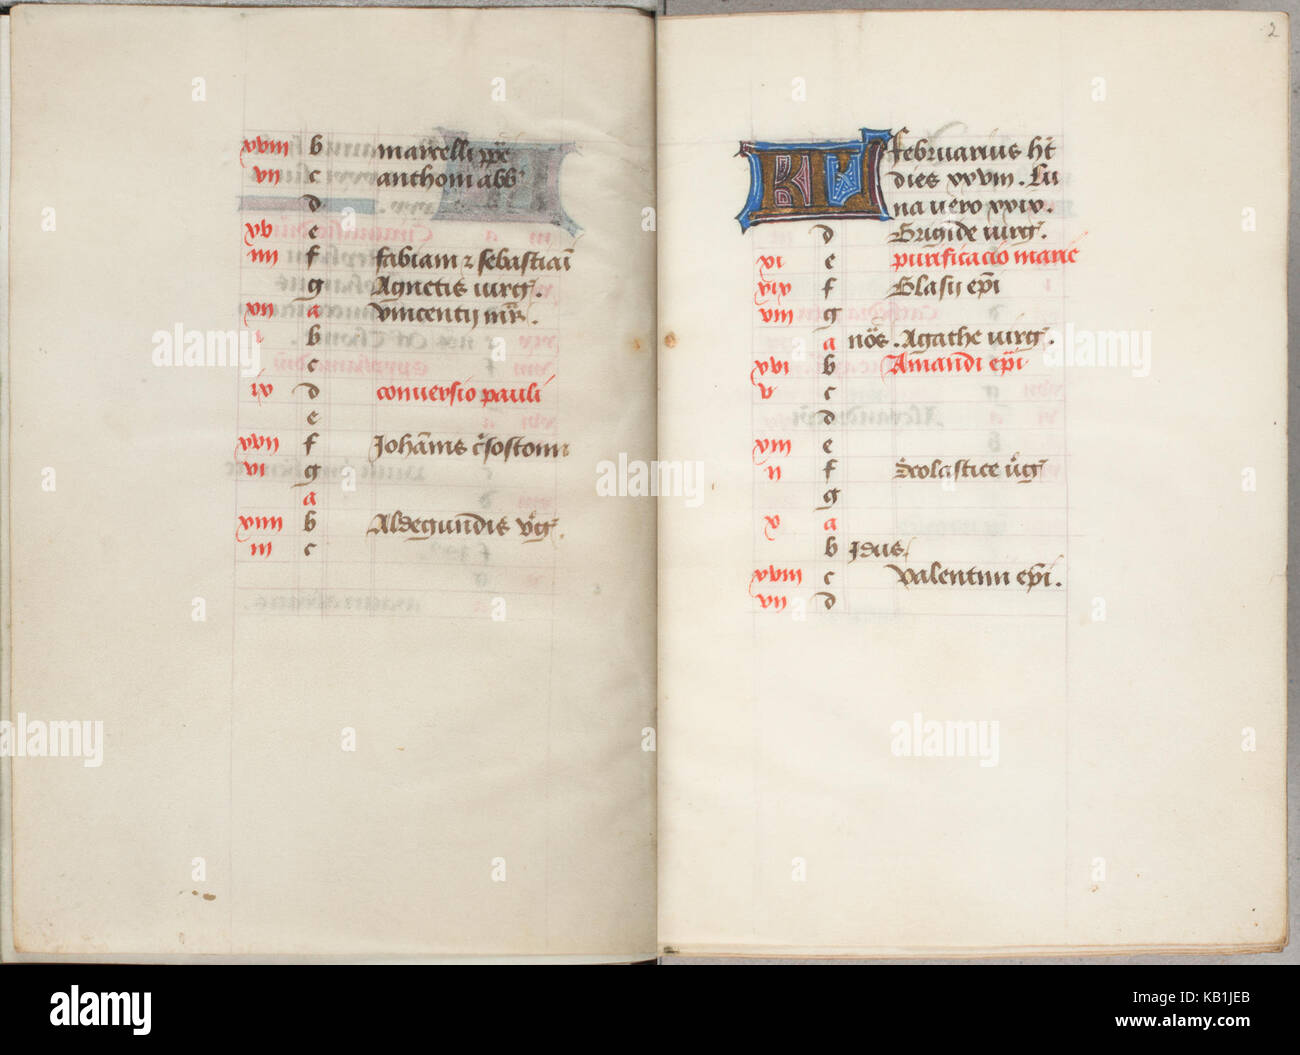 xviii b marcelli ppe
vii c anthoni abb
d
xv e
iiii f fabiani ⁊ sebastiani
g Agnetis uirg.
xii a vincentij mr.
i b
c
ix d conuersio pauli
e
xvii f Johannis crisostomi
vi g
a
xiiii b Aldegundis vg.
iii c
2
KL februarius ht
dies xxviii. Lu
na uero xxix.
d Brigide uirg.
xi e purificacio marie
xix f Blasij epi
viii g
a nos. Agathe uirg.
xvi b Amandi epi
v c
d
xiii e
ii f Scolastice uirg
g
x a
b Jdus
xviii c valentini epi.
vii d
alamy
KB1JEB
www.alamy.com